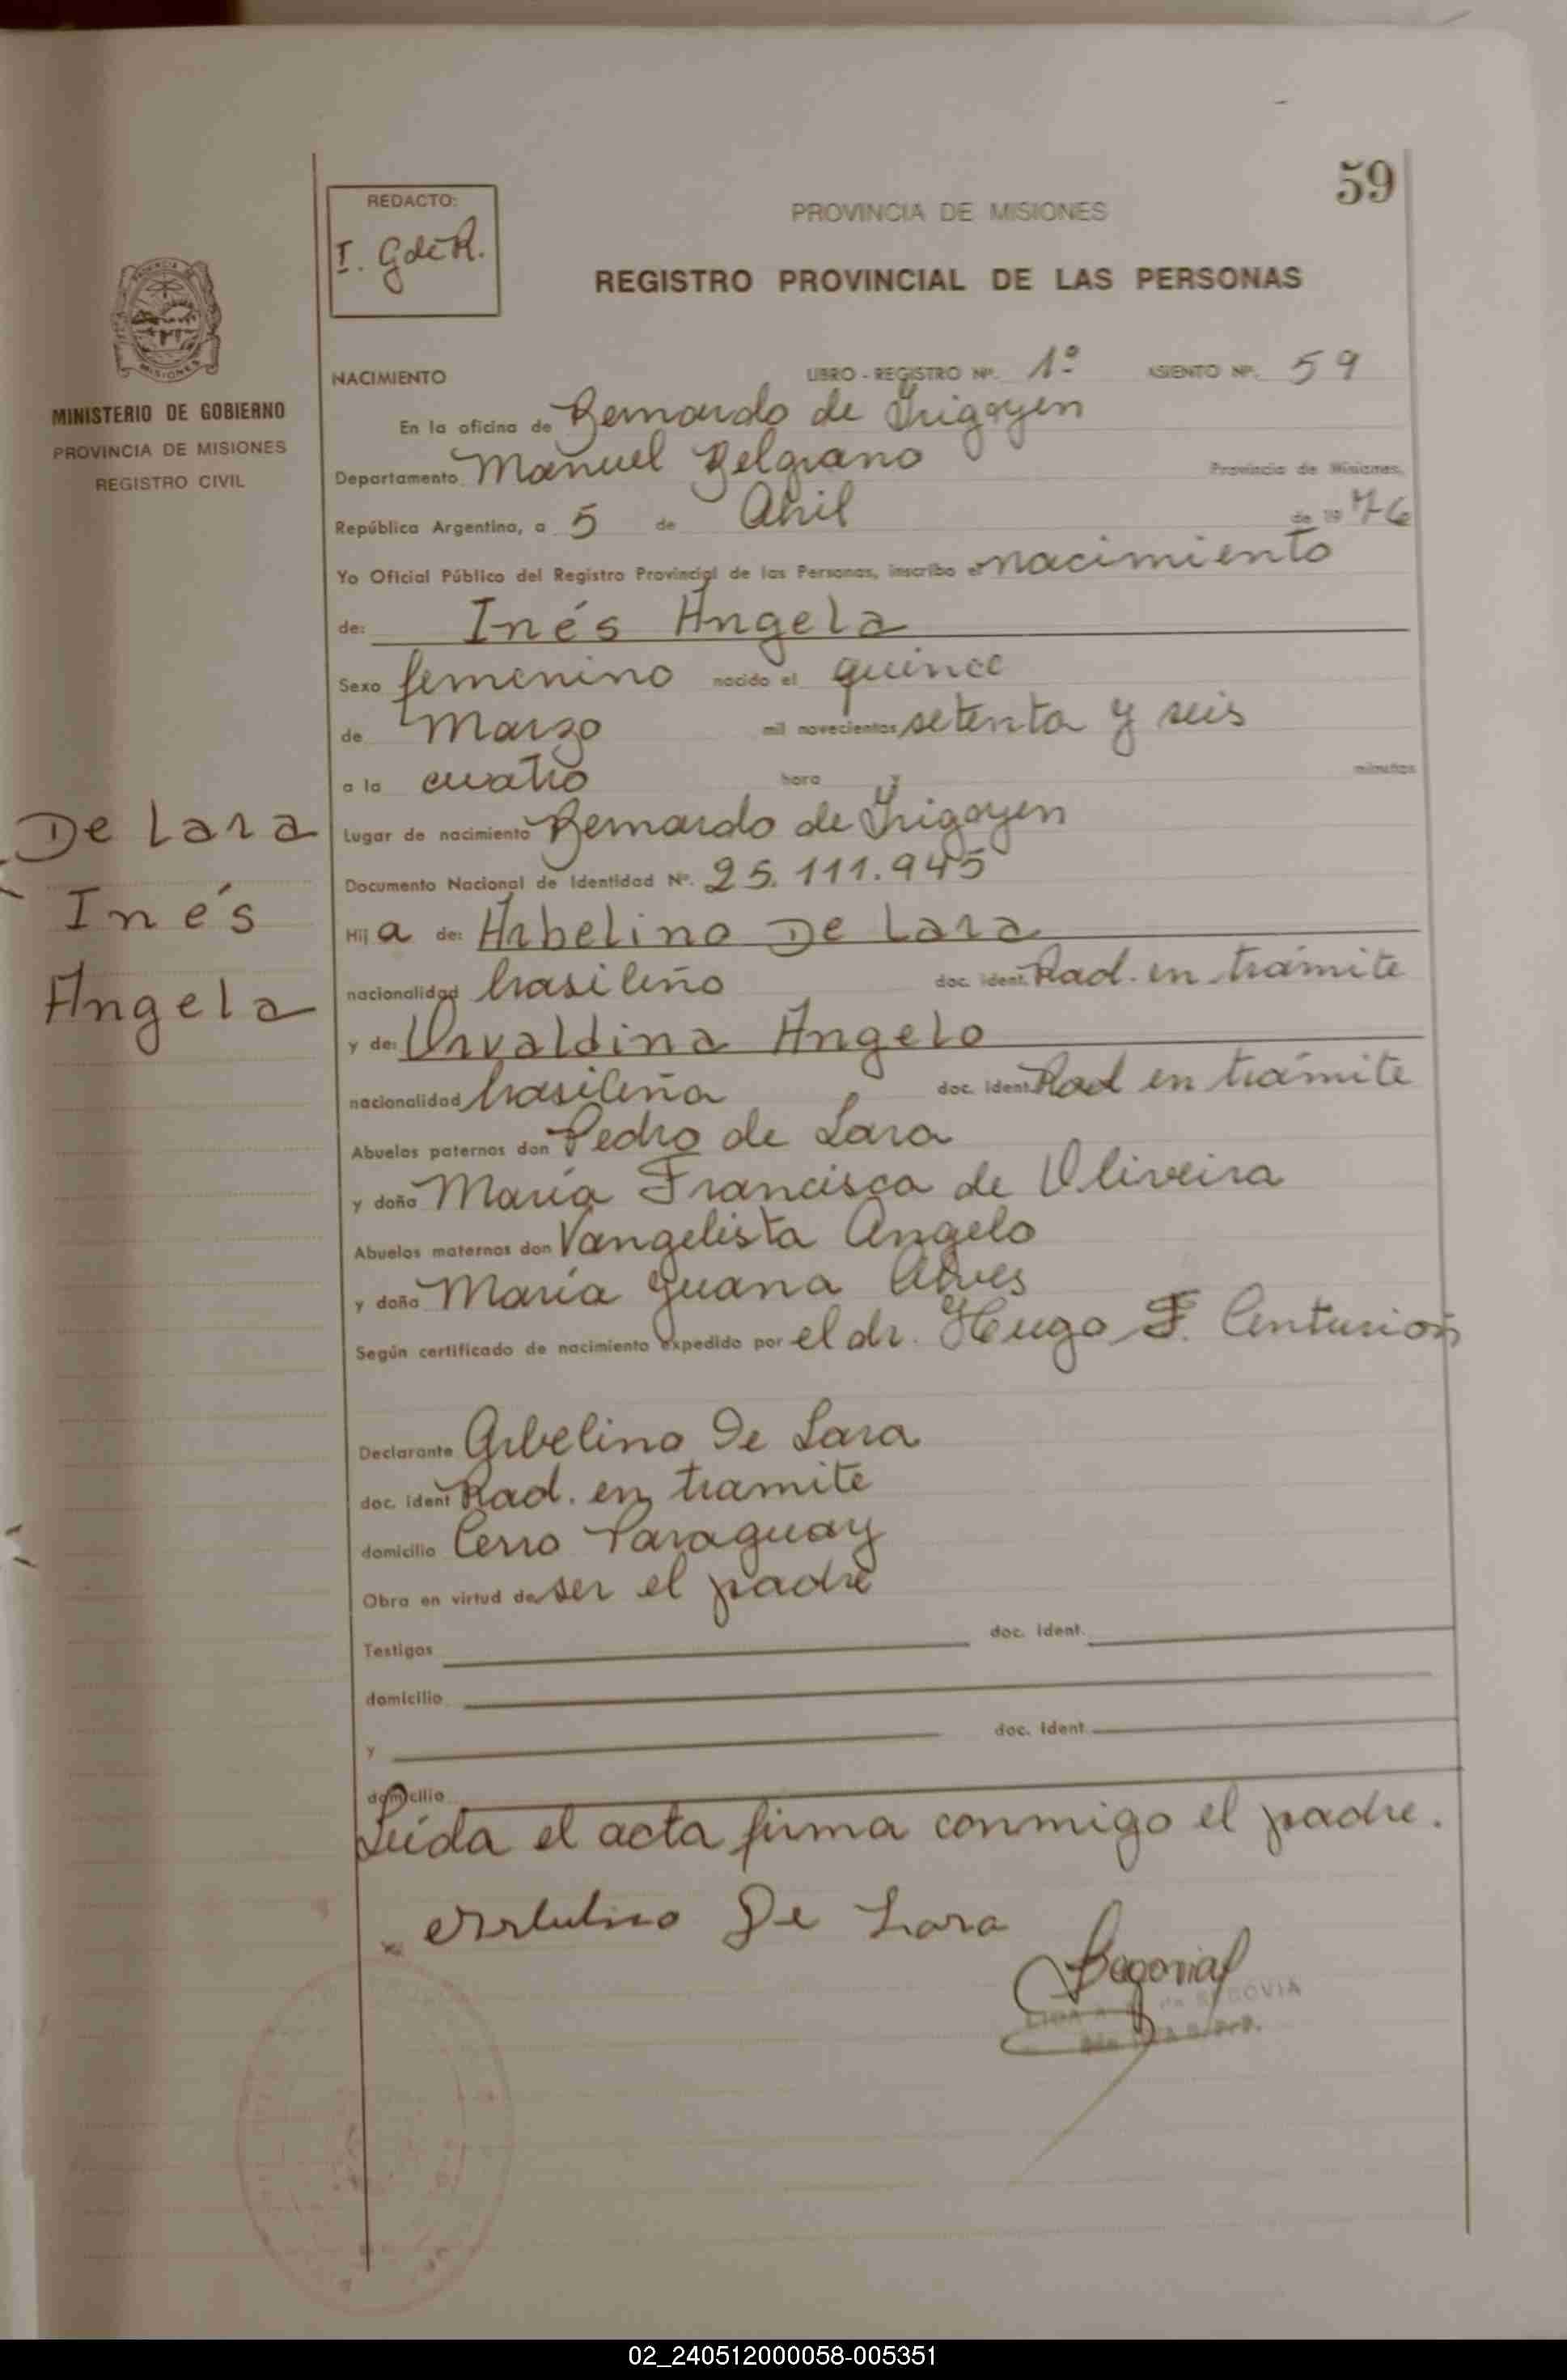 59
REDACTO:
I. G de R.
PROVINCIA DE MISIONES
REGISTRO PROVINCIAL DE LAS PERSONAS
MINISTERIO DE GOBIERNO
PROVINCIA DE MISIONES
REGISTRO CIVIL
NACIMIENTO LIBRO - REGISTRO Nº. 1º ASIENTO Nº. 59
En la oficina de Bernardo de Irigoyen
Departamento Manuel Belgrano Provincia de Misiones,
República Argentina, a 5 de Abril de 1976
Yo Oficial Público del Registro Provincial de las Personas, inscribo el nacimiento
de: Inés Angela
Sexo femenino nacido el quince
de Marzo mil novecientos setenta y seis
a la cuatro hora minutos
De Lara
Inés
Angela
Lugar de nacimiento Bernardo de Irigoyen
Documento Nacional de Identidad Nº. 25.111.945
Hija de: Arbelino De Lara
nacionalidad brasileño doc. ident. Rad. en trámite
y de: Orvaldina Angelo
nacionalidad brasileña doc. ident. Rad en trámite
Abuelos paternos don Pedro de Lara
y doña María Francisca de Oliveira
Abuelos maternos don Vangelista Angelo
y doña María Juana Alves
Según certificado de nacimiento expedido por el dr. Hugo F. Centurion
Declarante Arbelino De Lara
doc. ident Rad. en tramite
domicilio Cerro Paraguay
Obra en virtud de ser el padre
Testigos doc. ident.
domicilio
y doc. ident.
domicilio
Leída el acta firma conmigo el padre.
De Lara
de SEGOVIA
02_240512000058-005351